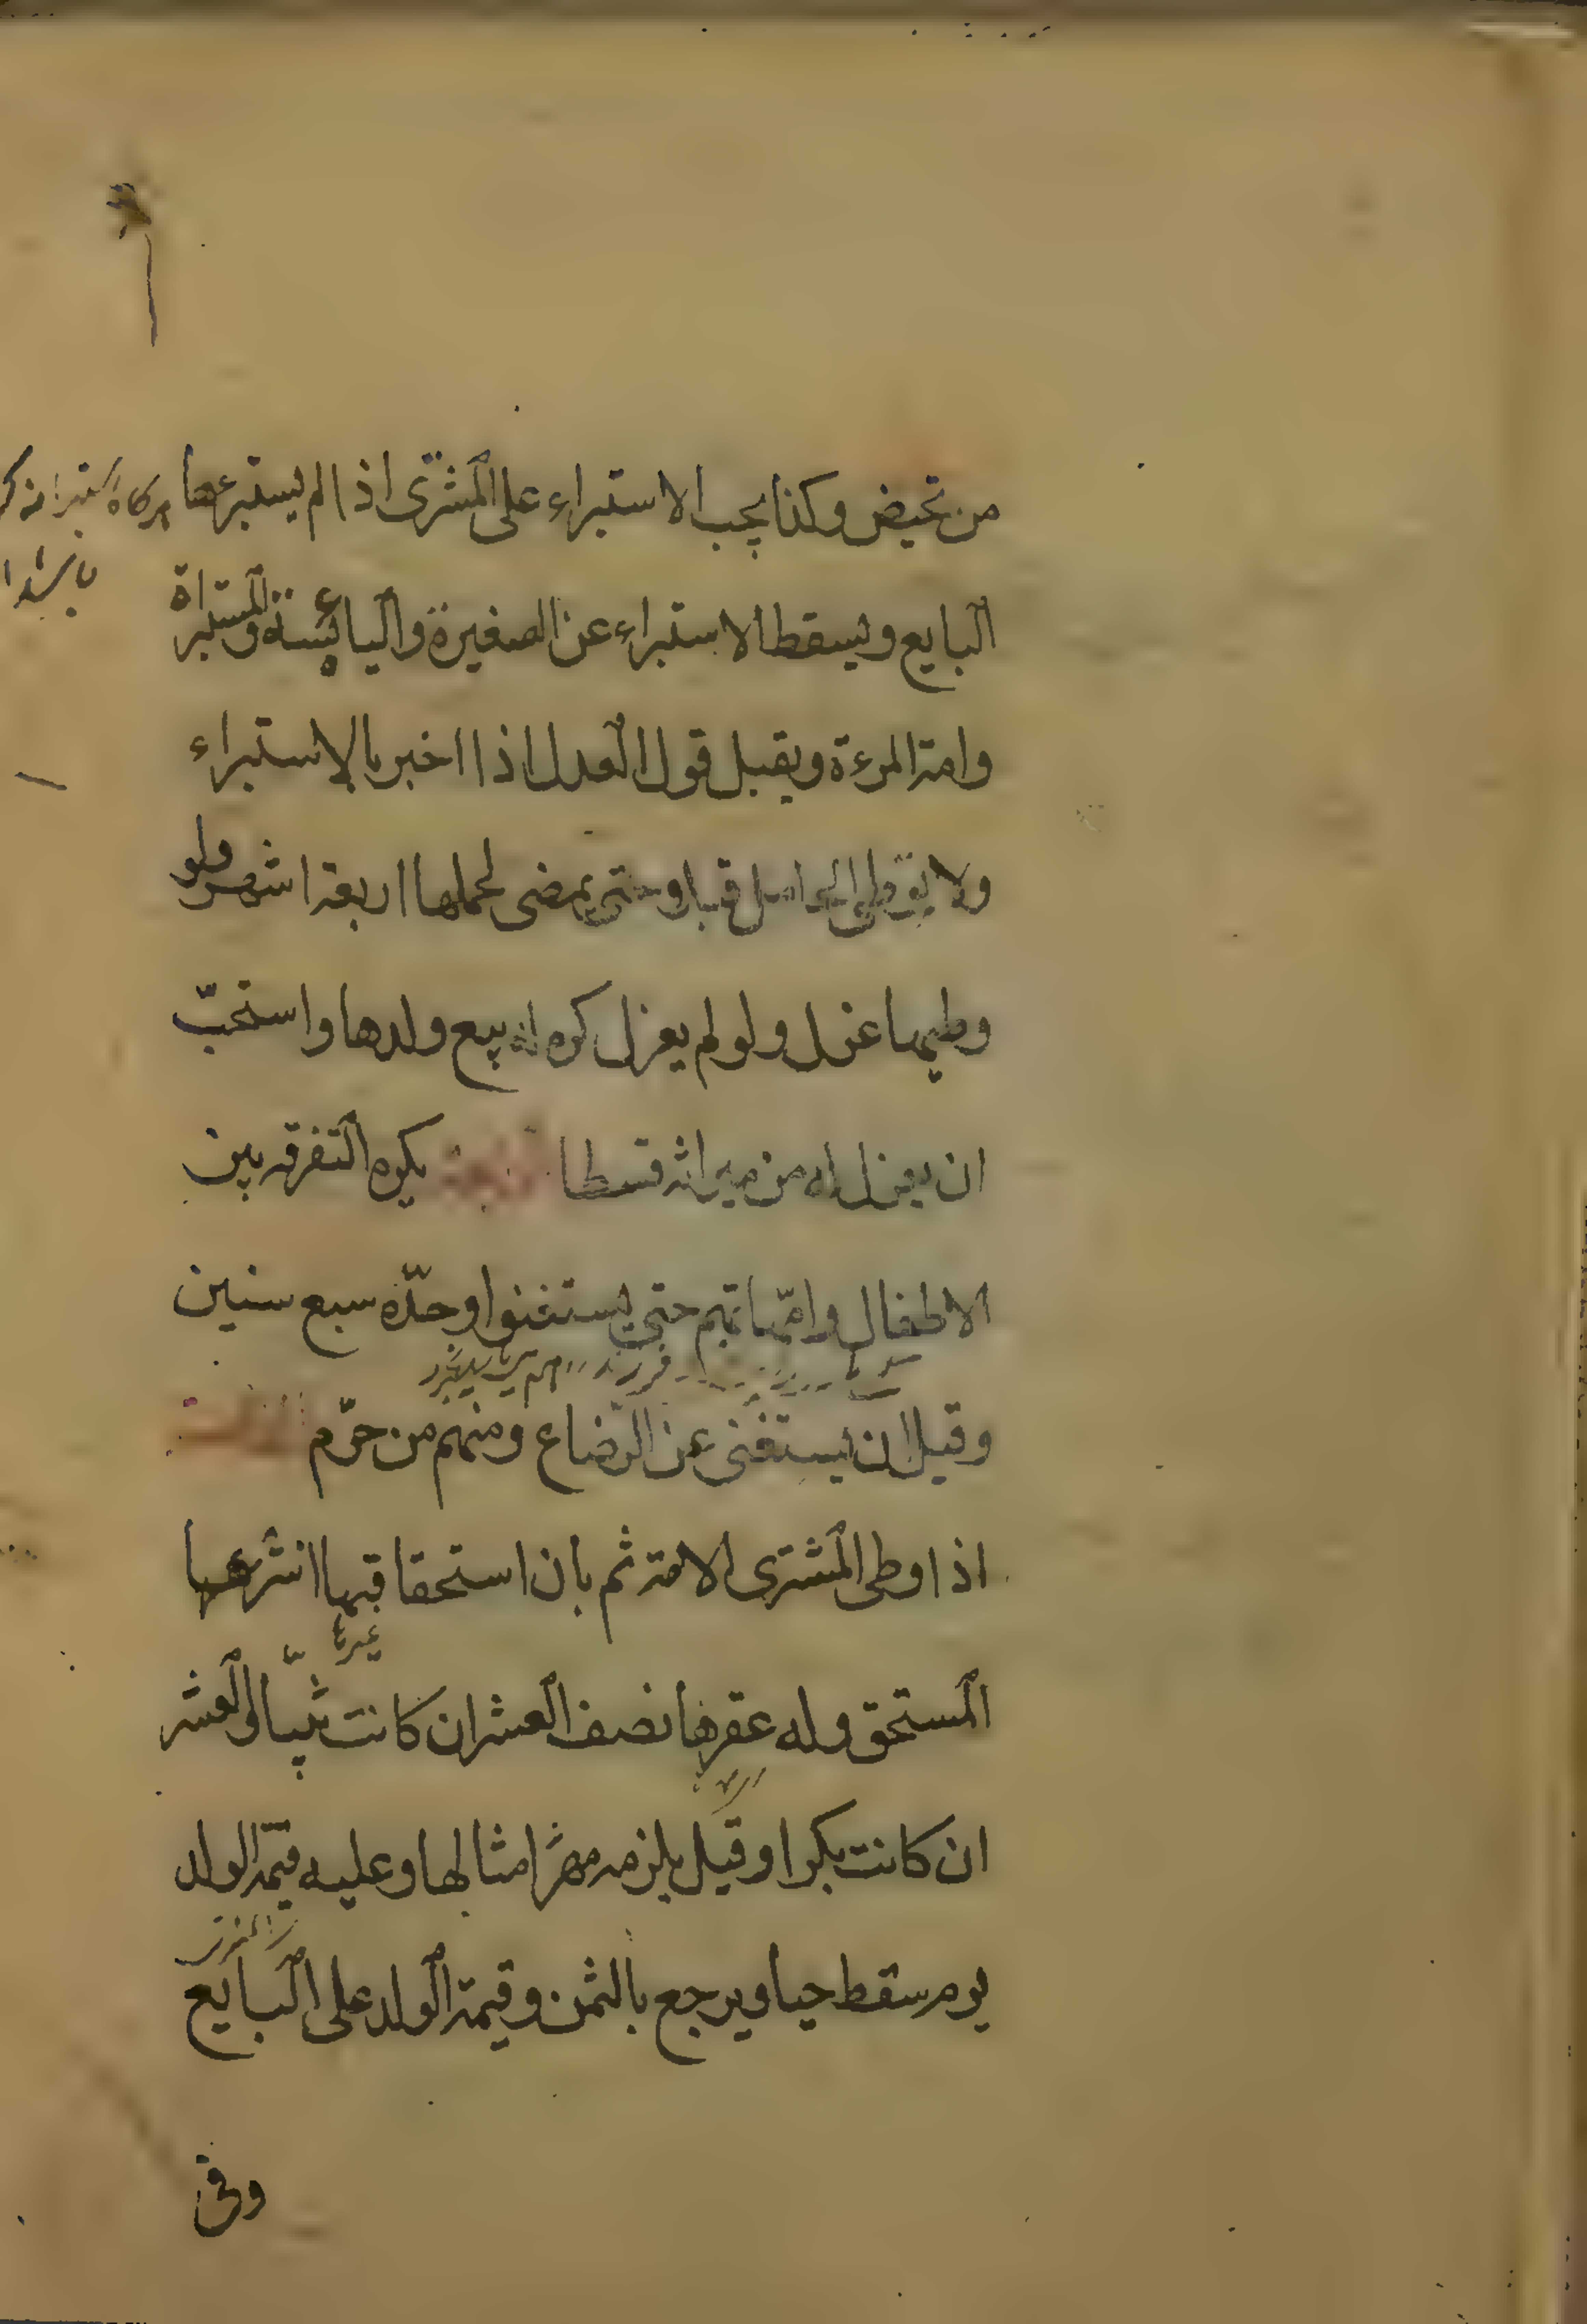 من تحيض وكذا يجب الاستبراء على المشترى اذا لم يستبرءها
البايع ويسقط الاستبراء عن الصغيرة واليائسة والمستبراة
وامة المرءة ويقبل قول العدل اذا اخبر بالاستبراء
ولا توطى الحامل قبلا حتى يمضى لحملها اربعة اشهر ولو
وطيها عزل ولو لم يعزل كره له بيع ولدها واستحبّ
ان يعزل له من ميراثه قسطا يكره التفرقه بين
الاطفال وامّهاتهم حتى يستغنوا وحدّه سبع سنين
وقيل ان يستغنى عن الرّضاع ومنهم من حرّم الثالثة
اذا وطى المشترى الامة ثم بان استحقاقها انتزعها
المستحق وله عقرها نصف العشر ان كانت ثيّبا والعشر
ان كانت بكرا وقيل يلزمه مهر امثالها وعليه قيمة الولد
يوم سقط حيا ويرجع بالثمن وقيمة الولد على البايع
وفى